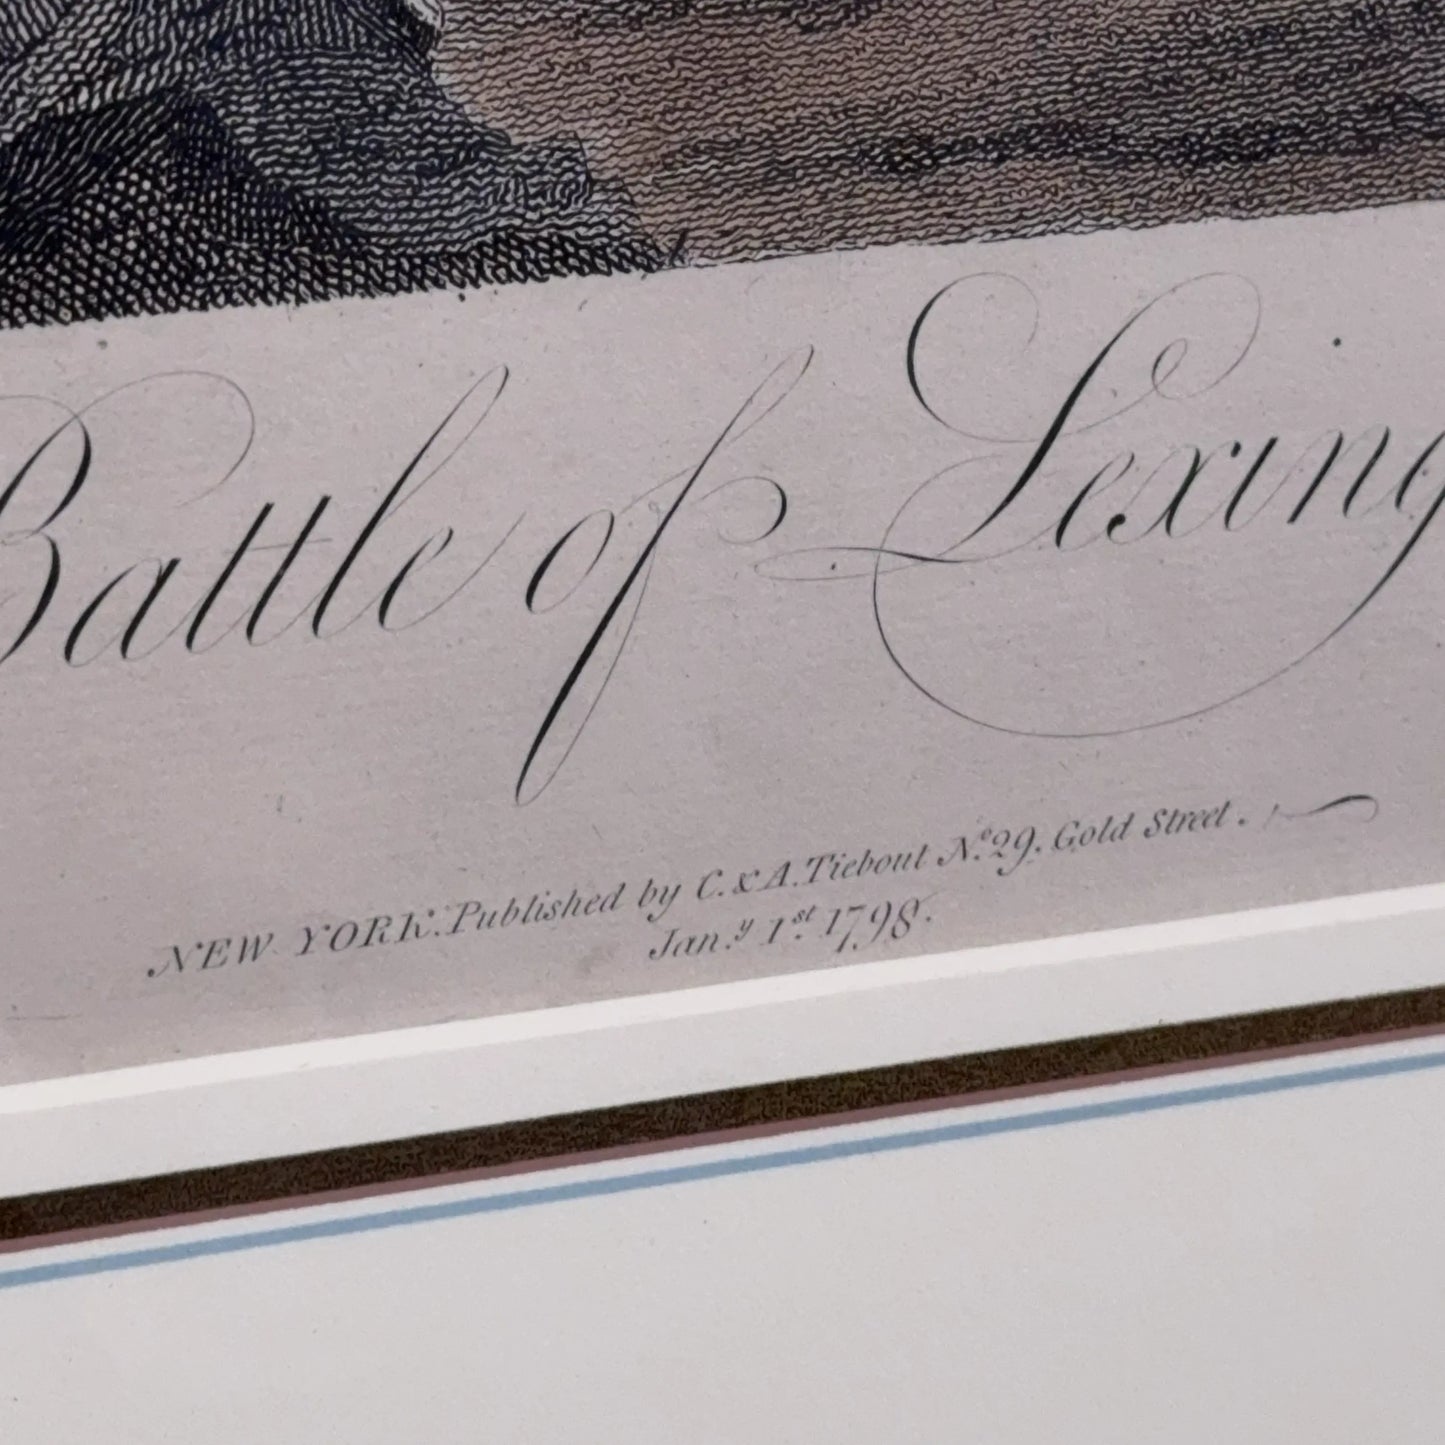 Battle of Lexing
NEW YORK. Published by C. & A. Tiebout No. 29. Gold Street.
Jan.y 1st. 1798.